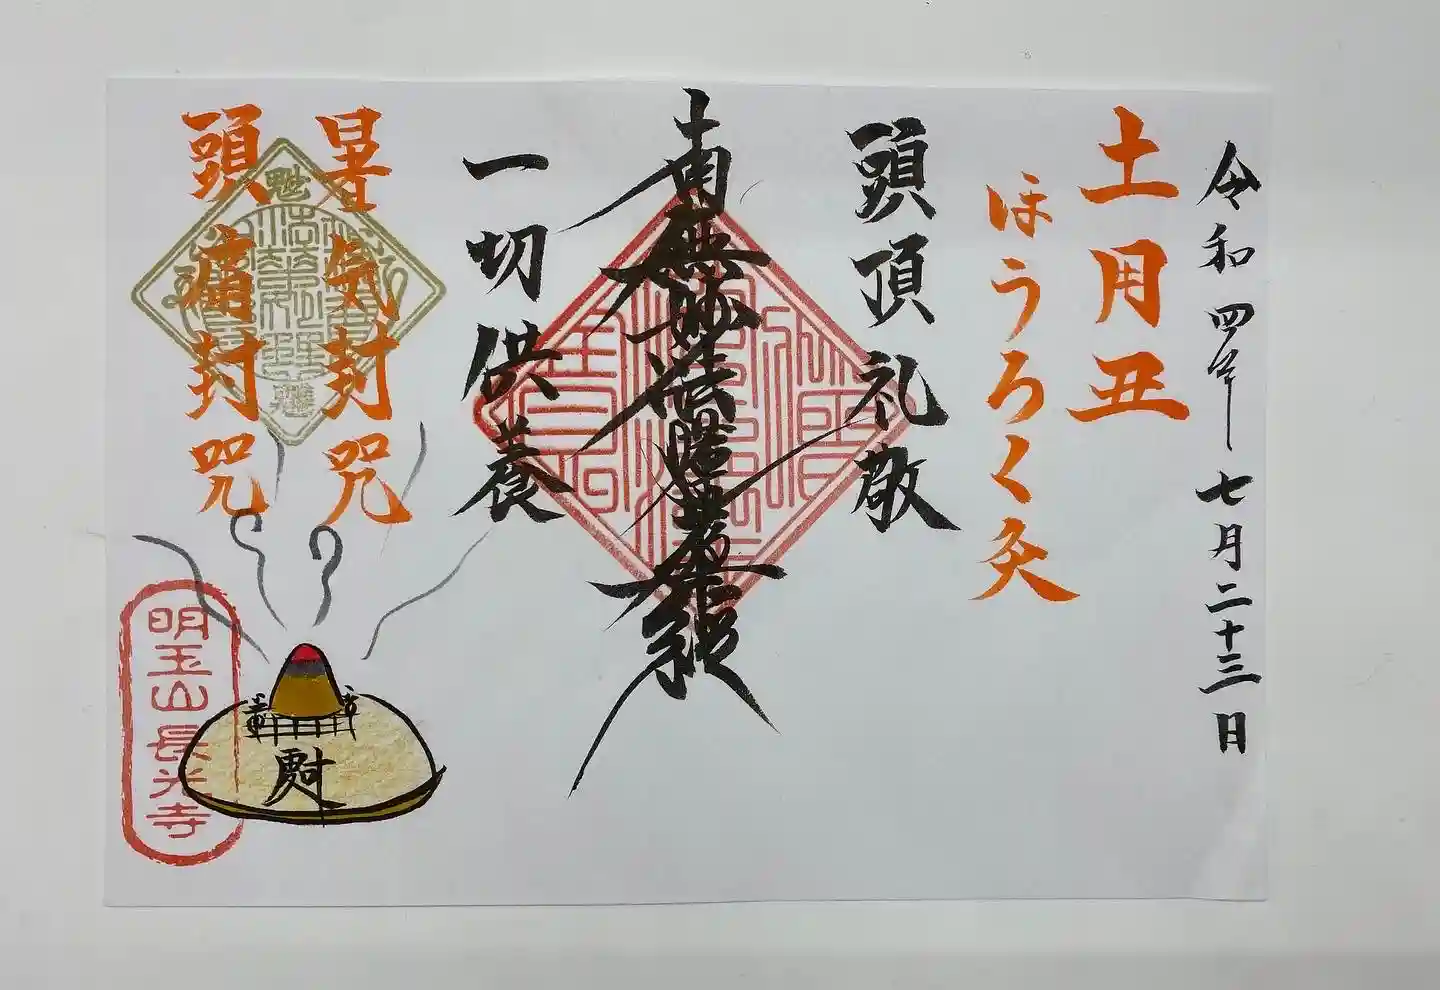 令和四年七月二十三日
土用丑
ほうろく灸
頭頂礼敬
南無妙法蓮華経
一切供養
暑気封咒
頭痛封咒
明玉山長光寺